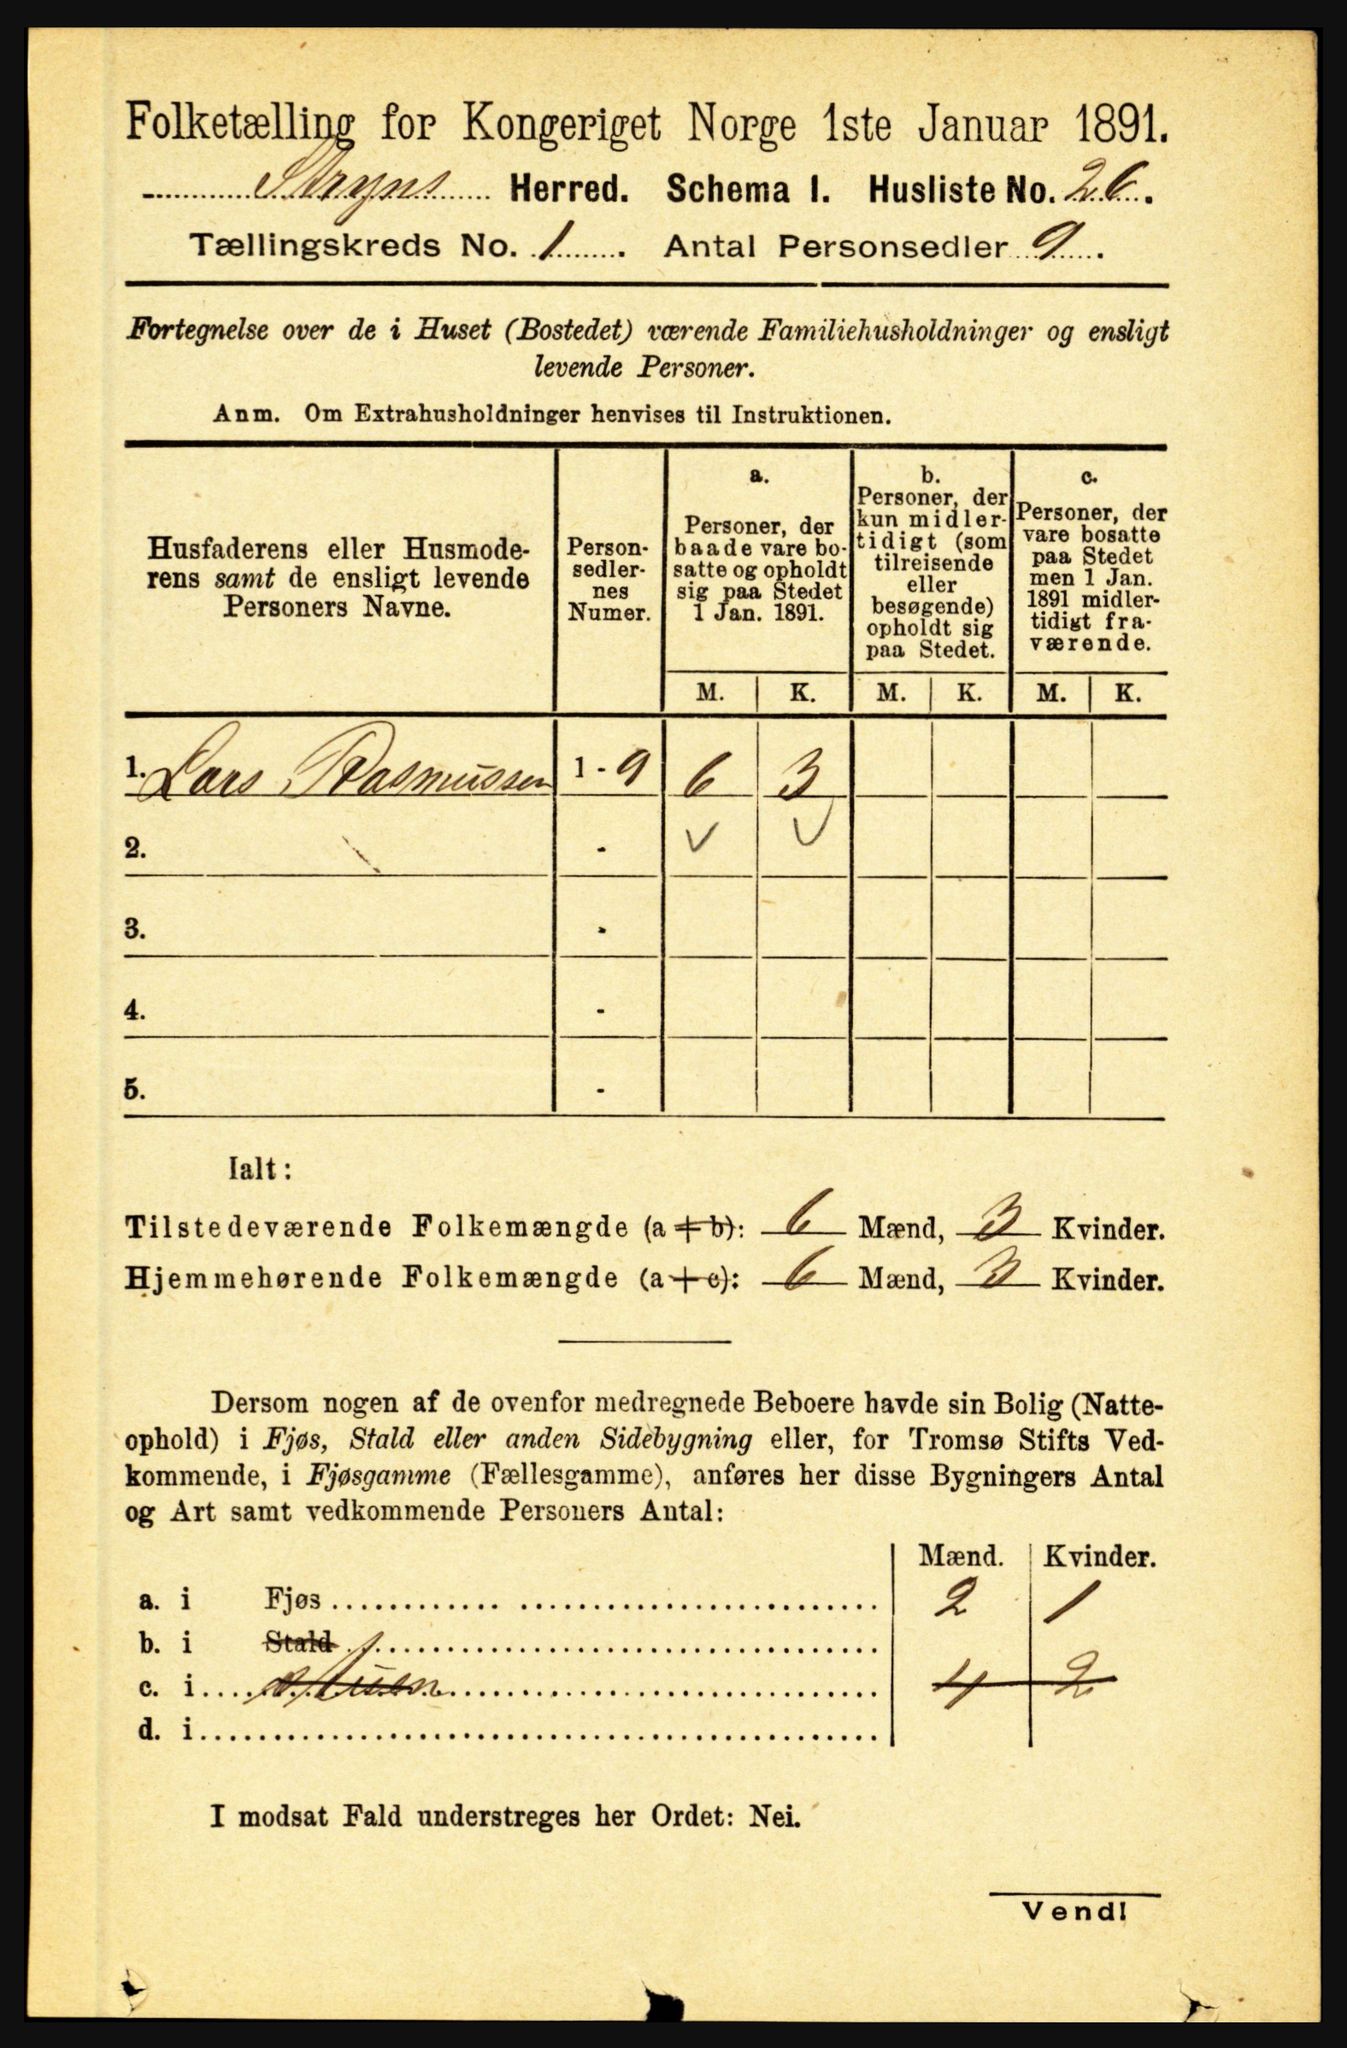 Folketælling for Kongeriget Norge 1ste Januar 1891.
Stryns Herred. Schema I. Husliste No. 26.
Tællingskreds No. 1. Antal Personsedler 9.
Fortegnelse over de i Huset (Bostedet) værende Familiehusholdninger og ensligt
levende Personer.
Anm. Om Extrahusholdninger henvises til Instruktionen.
Husfaderens eller Husmode-
rens samt de ensligt levende
Personers Navne.
Person-
sedler-
nes
Numer.
a.
Personer, der
baade vare bo-
satte og opholdt
sig paa Stedet
1 Jan. 1891.
b.
Personer, der
kun midler-
tidigt (som
tilreisende
eller
besøgende)
opholdt sig
paa Stedet.
c.
Personer, der
vare bosatte
paa Stedet
men 1 Jan.
1891 midler-
tidigt fra-
værende.
M. K. M. K. M. K.
1. Lars Rasmussen 1 - 9 6 3
2. -
3. -
4. -
5. -
Ialt:
Tilstedeværende Folkemængde (a + b): 6 Mænd, 3 Kvinder.
Hjemmehørende Folkemængde (a + c): 6 Mænd, 3 Kvinder.
Dersom nogen af de ovenfor medregnede Beboere havde sin Bolig (Natte-
ophold) i Fjøs, Stald eller anden Sidebygning eller, for Tromsø Stifts Ved-
kommende, i Fjøsgamme (Fællesgamme), anføres her disse Bygningers Antal
og Art samt vedkommende Personers Antal:
Mænd. Kvinder.
a. i Fjøs 2 1
b. i Stald
c. i 4 2
d. i
I modsat Fald understreges her Ordet: Nei.
Vend!